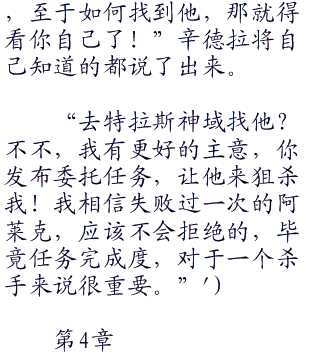 ，至于如何找到他，那就得
看你自己了！”辛德拉将自
己知道的都说了出来。
“去特拉斯神域找他？
不不，我有更好的主意，你
发布委托任务，让他来狙杀
我！我相信失败过一次的阿
莱克，应该不会拒绝的，毕
竟任务完成度，对于一个杀
手来说很重要。”′)
第4章